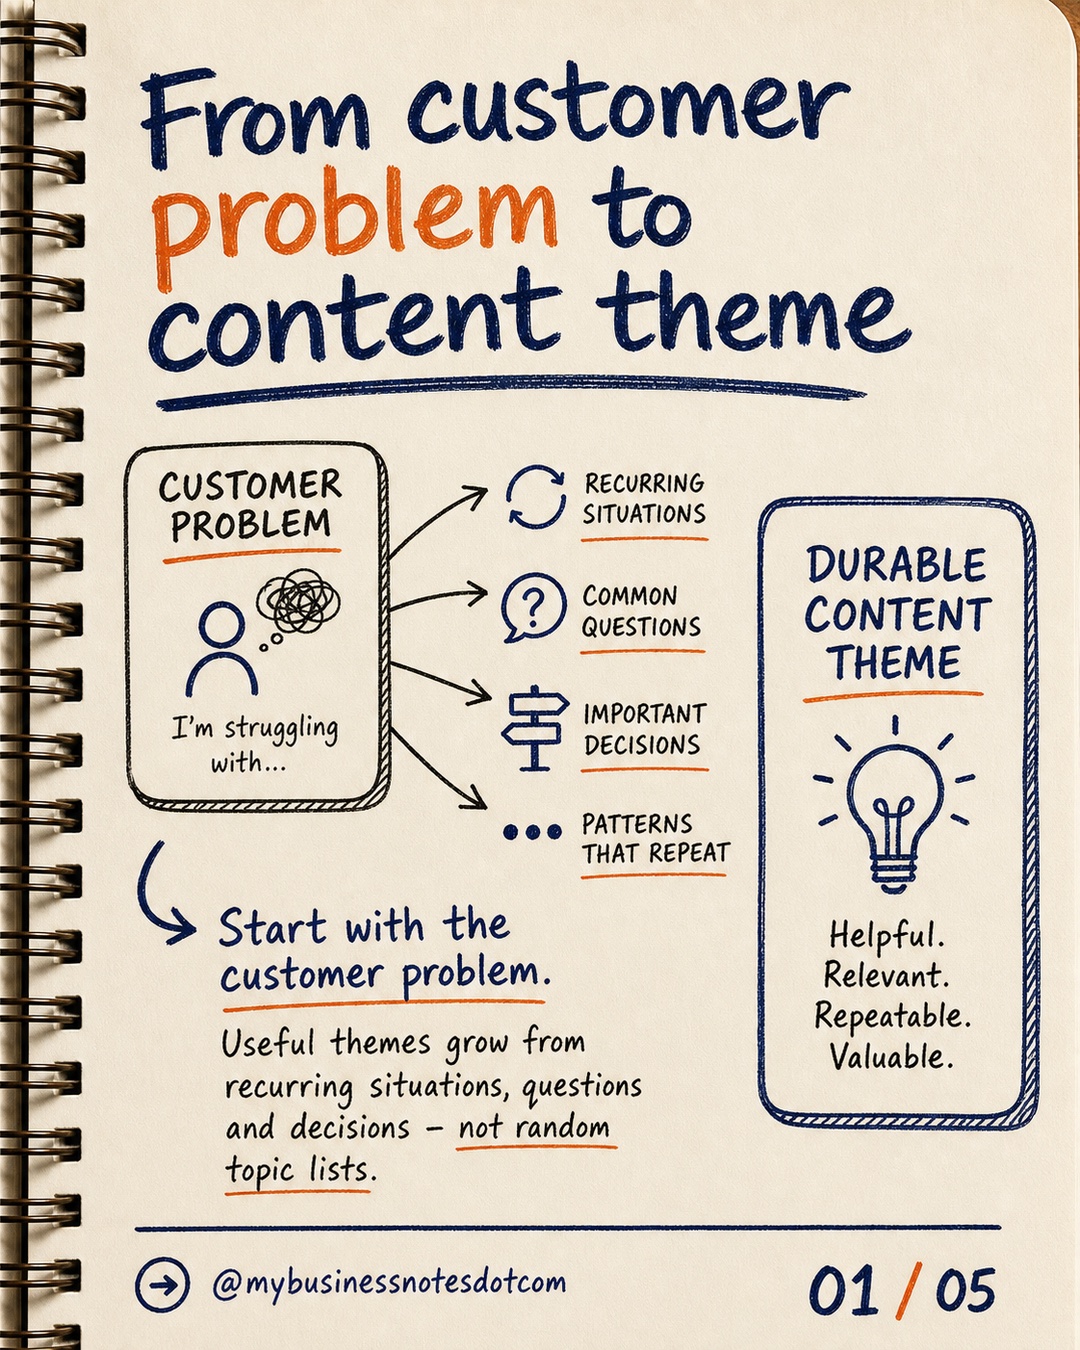 From customer
problem to
content theme
CUSTOMER
PROBLEM
I'm struggling
with...
RECURRING
SITUATIONS
?
COMMON
QUESTIONS
IMPORTANT
DECISIONS
PATTERNS
THAT REPEAT
DURABLE
CONTENT
THEME
Helpful.
Relevant.
Repeatable.
Valuable.
Start with the
customer problem.
Useful themes grow from
recurring situations, questions
and decisions – not random
topic lists.
@mybusinessnotesdotcom
01 / 05